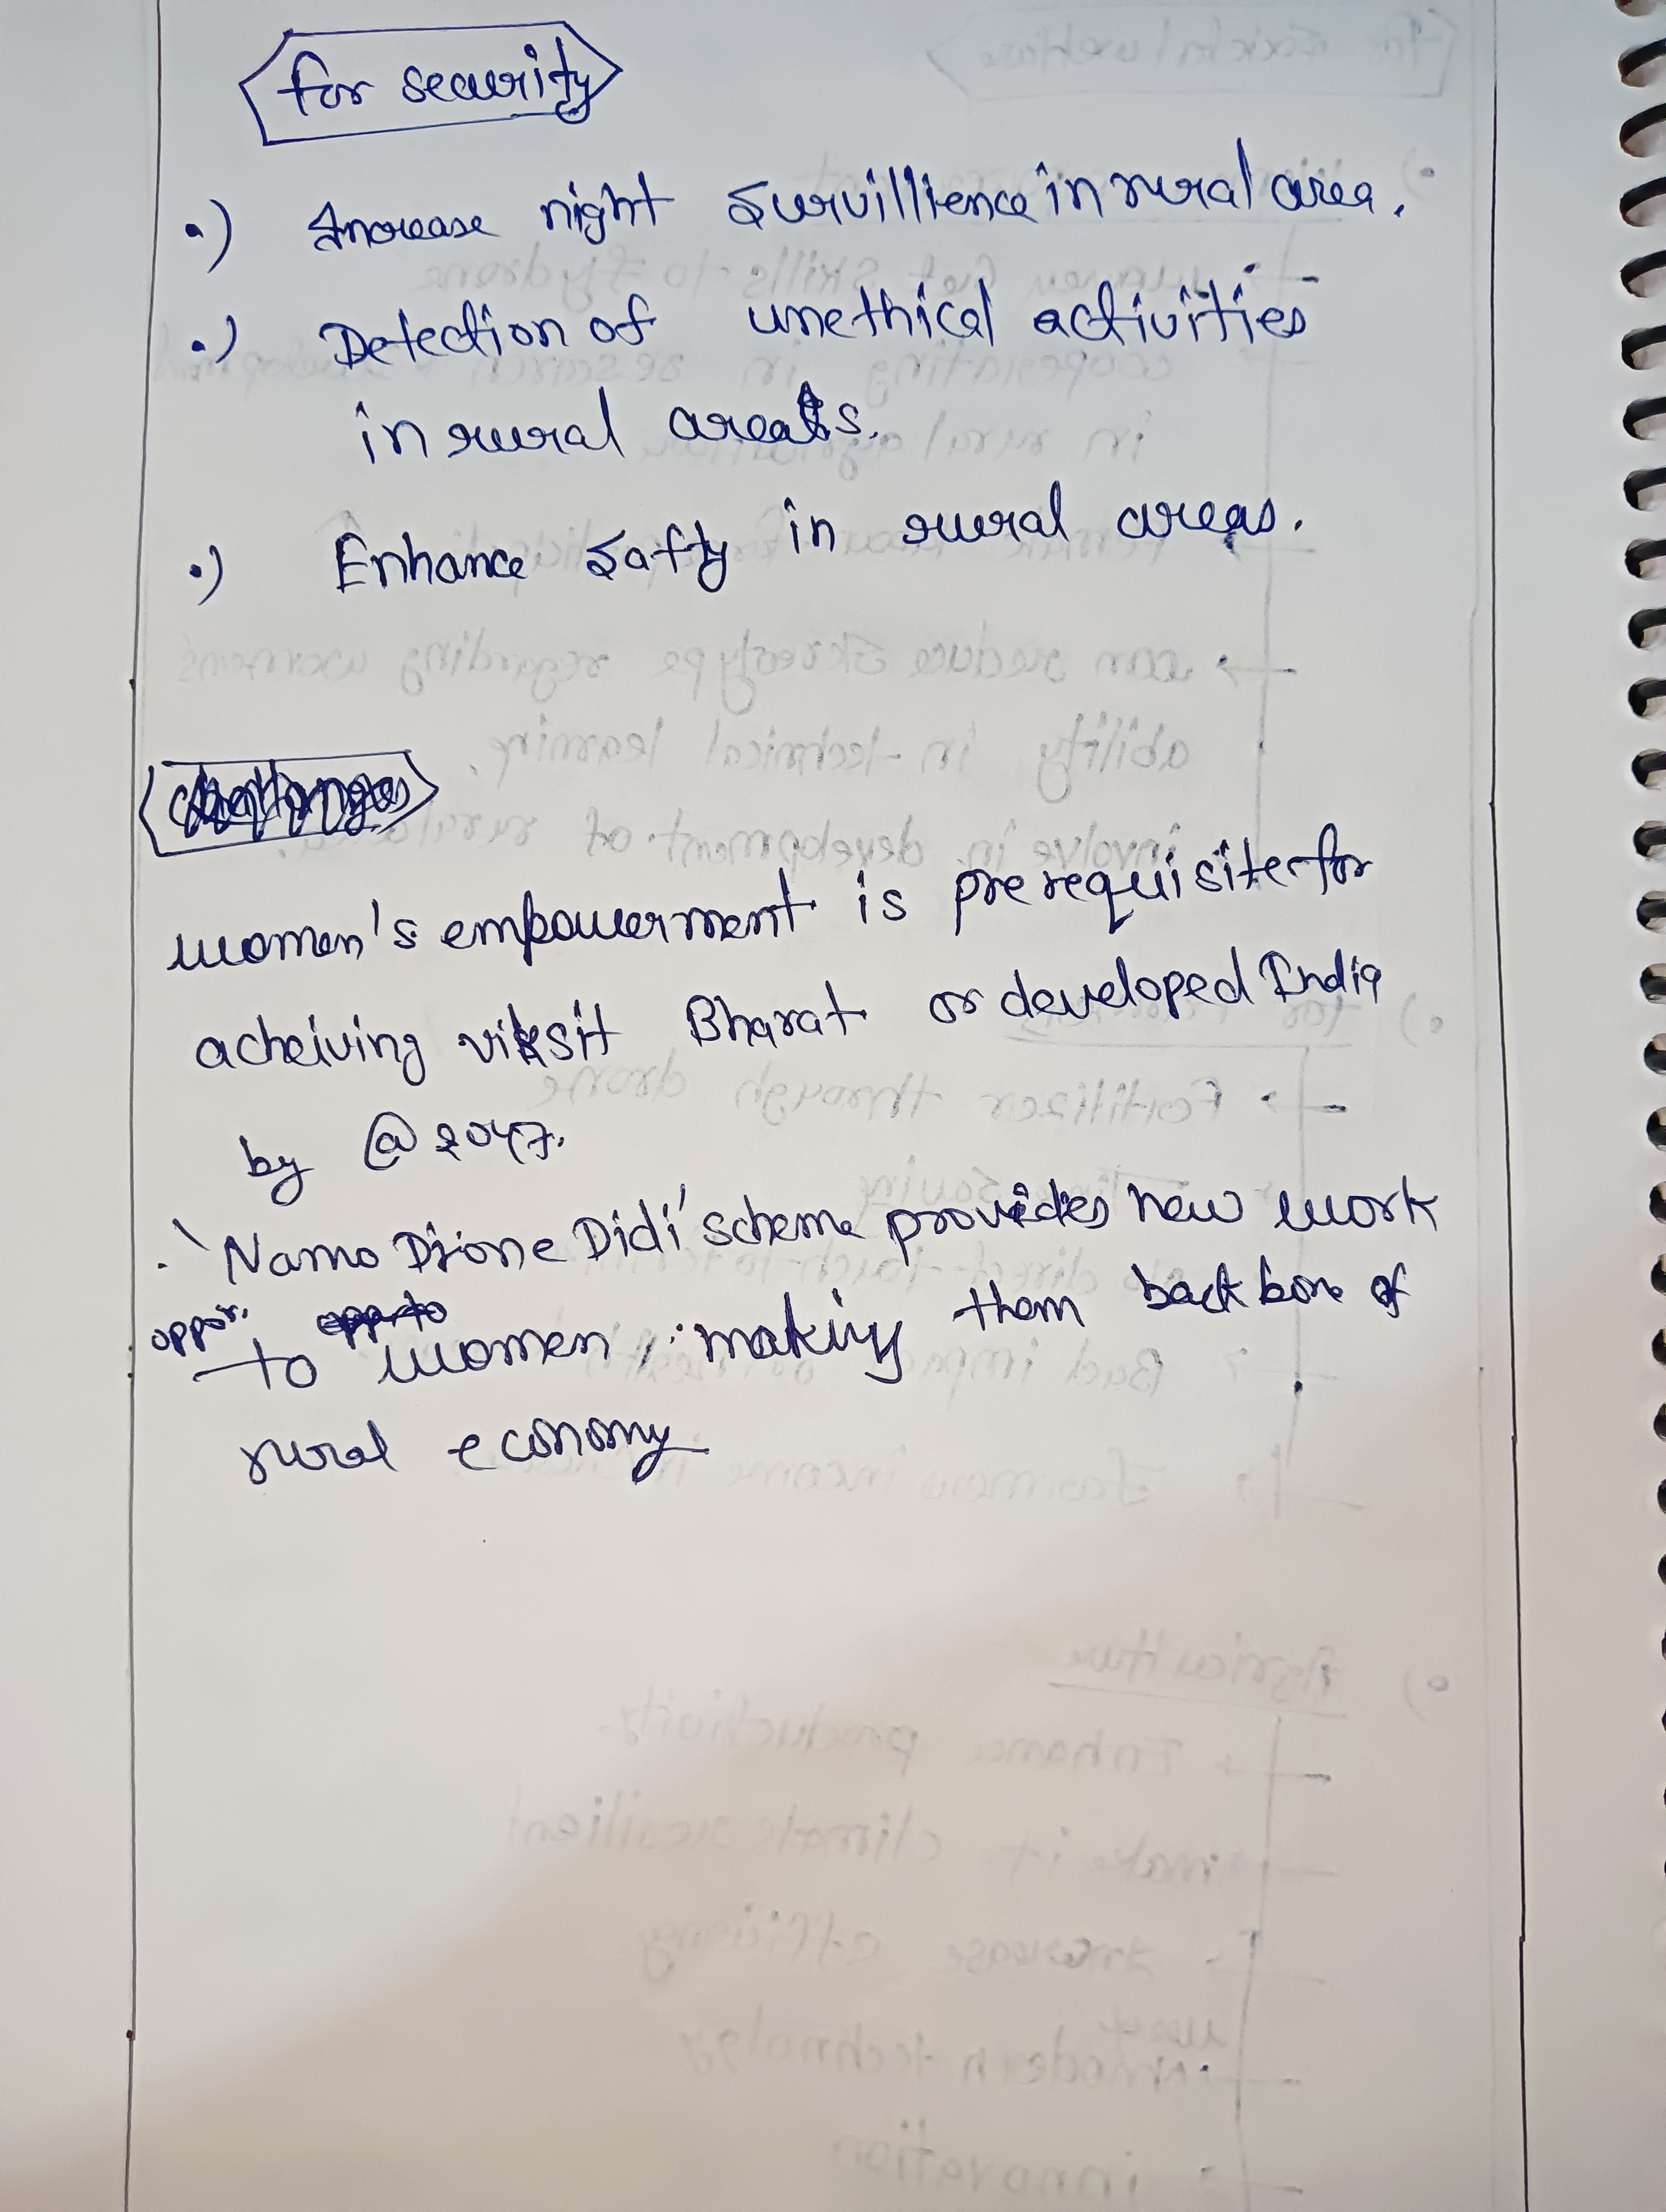 for security
•) Increase night survillience in rural area.
•) Detection of unethical activities
in rural areas.
•) Enhance safty in rural areas.
women's empowerment is prerequisite for
acheiving viksit Bharat or developed India
by @2047.
. 'Namo Drone Didi' scheme provides new work
oppor.
to women, making them backbone of
rural economy